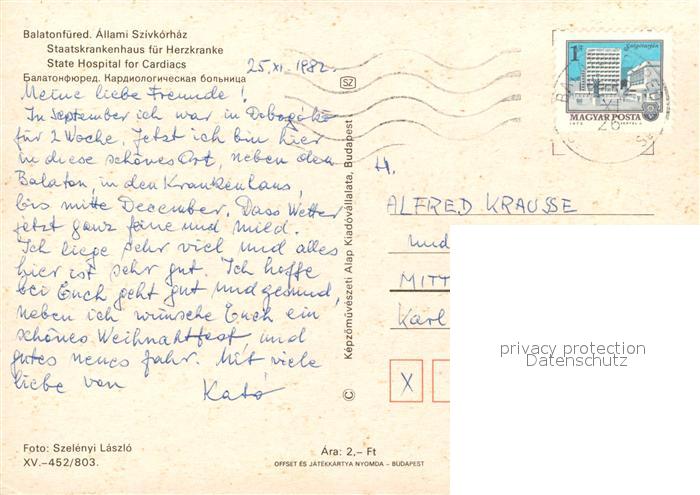 Balatonfüred. Állami Szívkórház
Staatskrankenhaus für Herzkranke
State Hospital for Cardiacs
Балатонфюред. Кардиологическая больница
25. XI. 1982.
Meine liebe Freunde!
In September ich war in Dobogókő
für 2 Woche. Jetzt ich bin hier
in diese schönes Ort, neben den
Balaton, in den Krankenhaus,
bis mitte December. Dass Wetter
jetzt ganz feine und mild.
Ich liege sehr viel und alles
hier ist sehr gut. Ich hoffe
bei Euch geht gut und gesund,
neben ich wünsche Euch ein
schönes Weihnahtfest und
gutes neues Jahr. Mit viele
liebe von Kató
Foto: Szelényi László
XV.–452/803.
Ára: 2,– Ft
OFFSET ÉS JÁTÉKKÁRTYA NYOMDA – BUDAPEST
© Képzőművészeti Alap Kiadóvállalata, Budapest
SZ
1 Ft
Salgótarján
MAGYAR POSTA
XI
26
H.
ALFRED KRAUSSE
und
MITT
Karl
X
privacy protection
Datenschutz